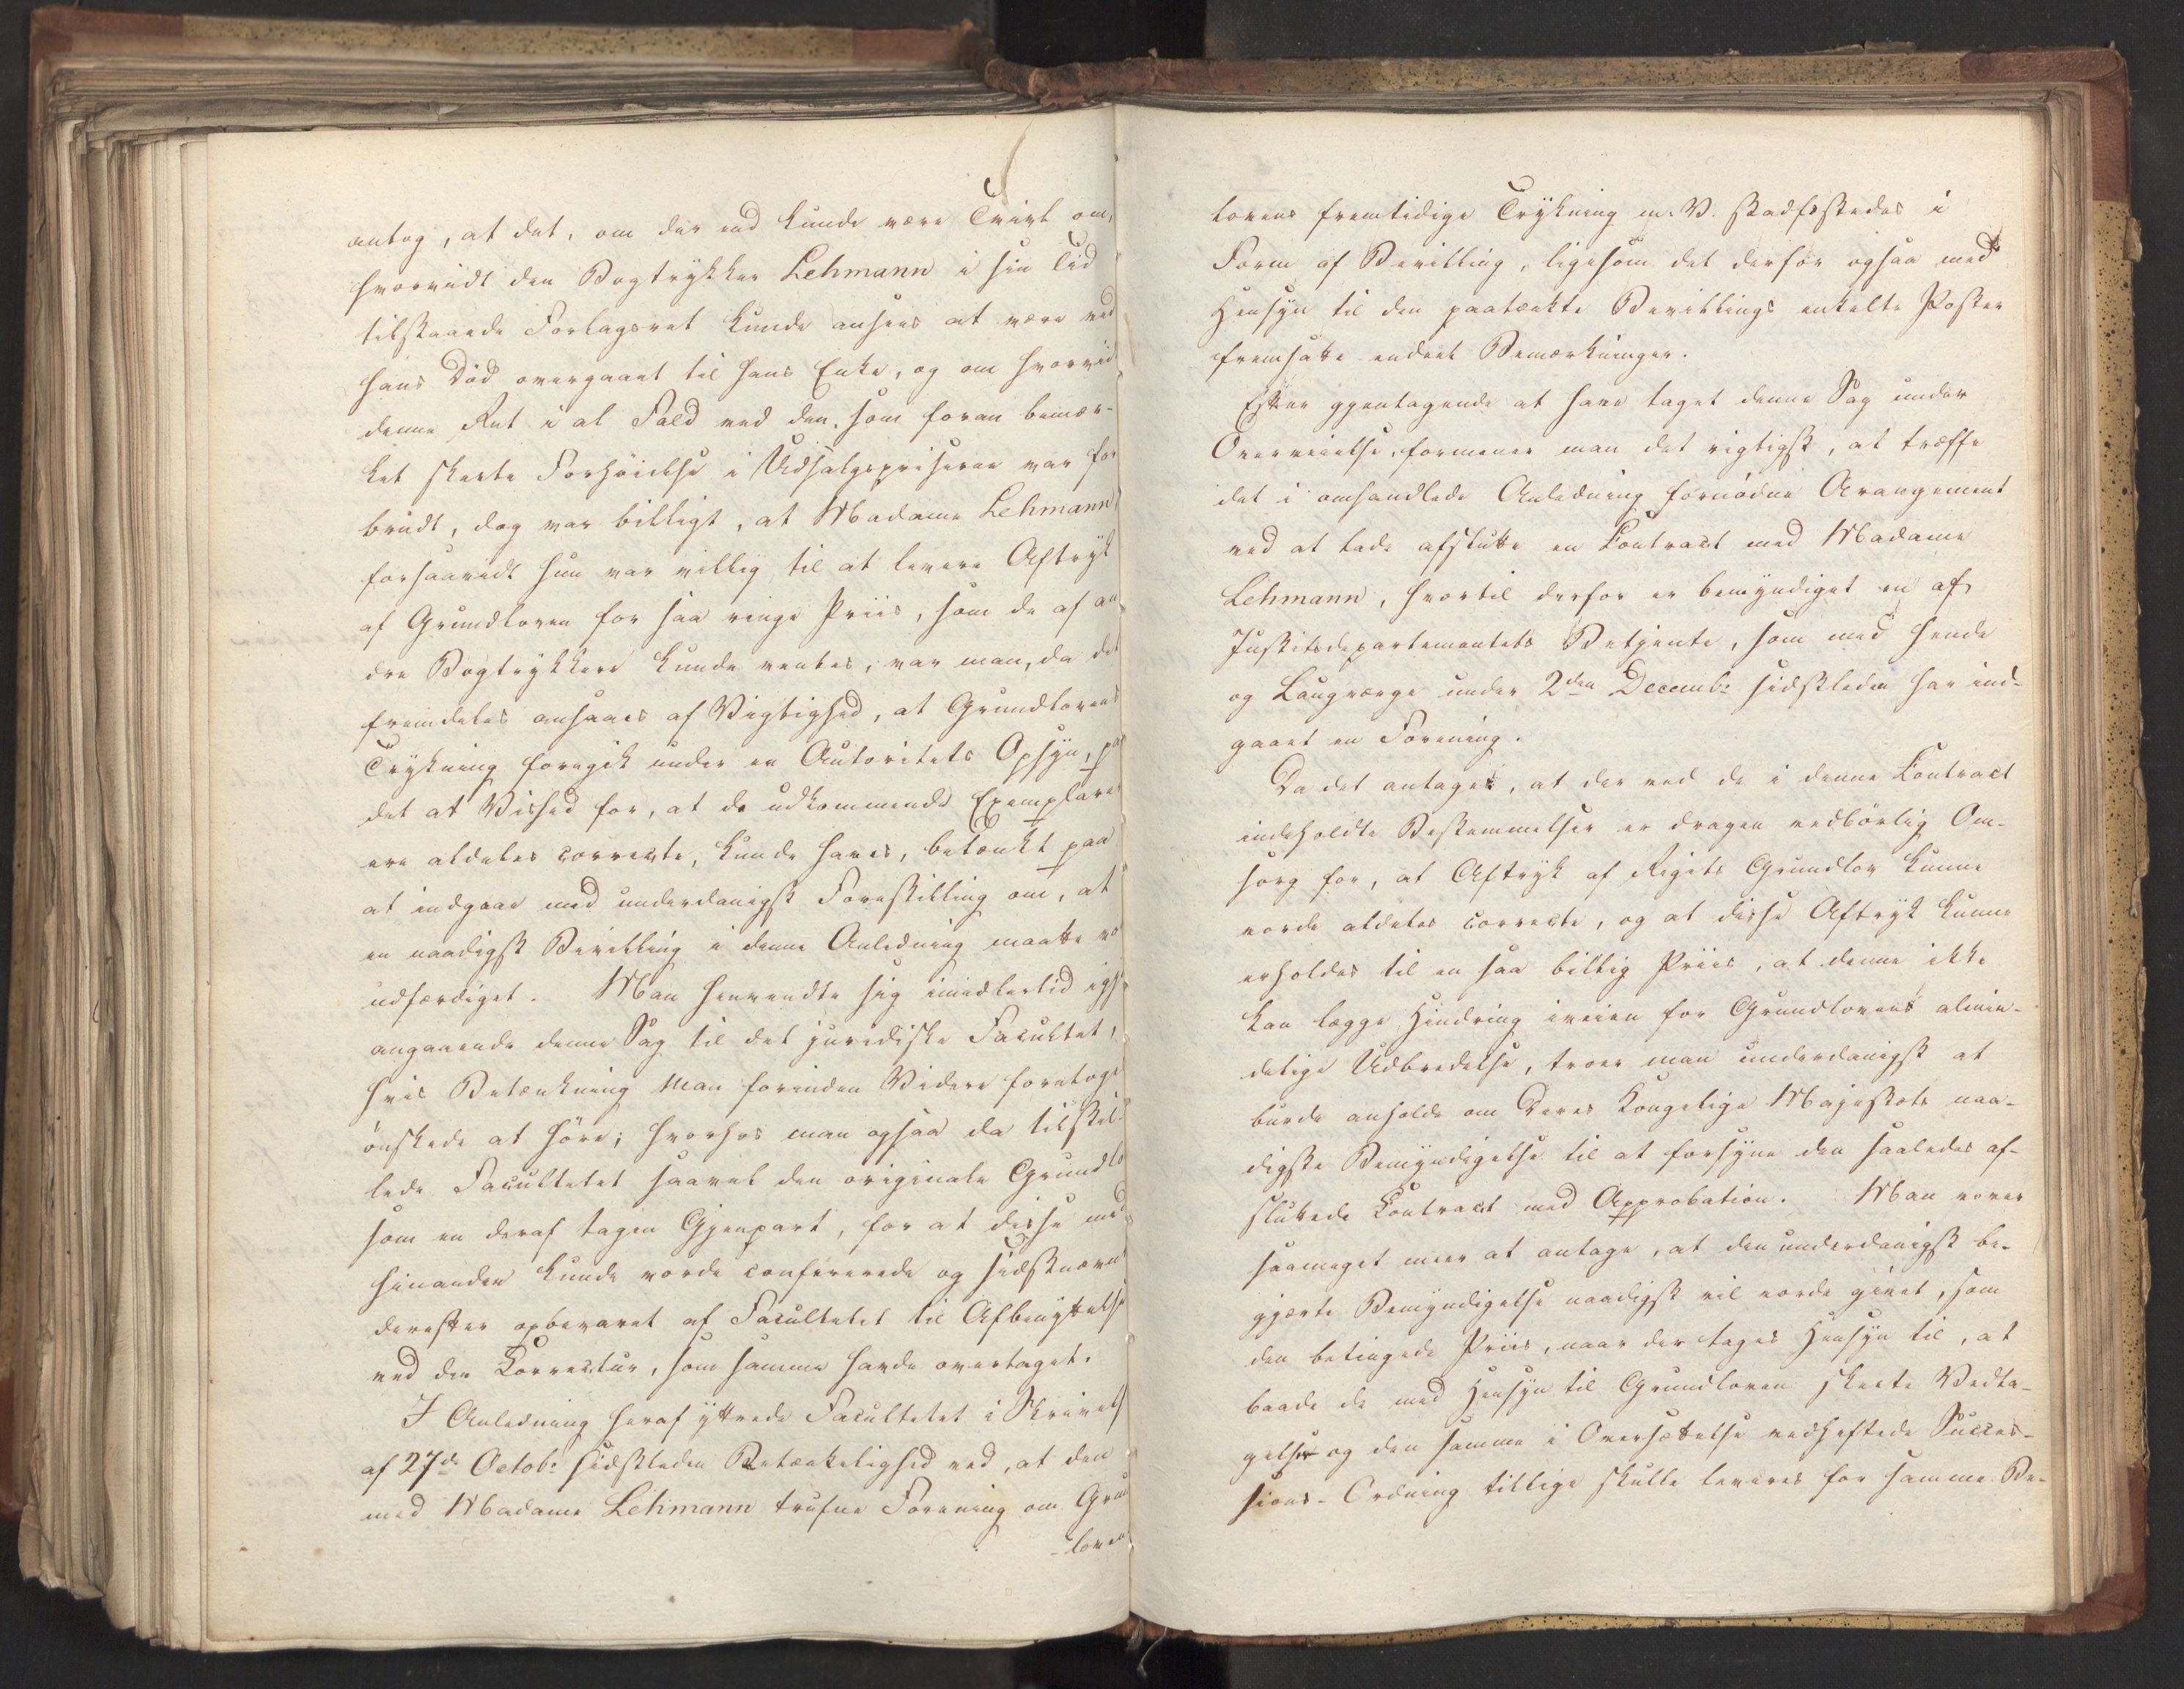 antog, at det, om der end kunde være Tvivl om,
hvorvidt den Bogtrykker Lehmann i sin Tid
tilstaaede Forlagsret kunde ansees at være ved
hans Död overgaaet til hans Enke, og om hvorvidt
denne Ret i al Fald ved den, som foran bemær-
ket skeete Forhöielse i Udsalgspriserne var for
brudt, dog var billigt, at Madame Lehmann
forsaavidt hun var villig til at levere Aftryk
af Grundloven for saa ringe Priis, som de af an
dre Bogtrykkere kunde ventes, var man, da det
fremdeles ansaaes af Vigtighed, at Grundlovens
Trykning foregik under en Autoritets Opsyn, paa
det at Vished for, at de udkommende Exemplarer
ere aldeles correcte, kunde haves, betænkt paa
at indgaae med underdanigst Forestilling om, at
en naadigst Bevilling i denne Anledning maatte vor
udfærdiget. Man henvendte sig imidlertid igj
angaaende denne Sag til det juridiske Facultet,
hvis Betænkning man forinden Videre foretoges
önskede at höre; hvorhos man ogsaa da tilstil-
lede Facultetet saavel den originale Grundlo
som en deraf tagen Gjenpart, for at disse med
hinanden kunde vorde confererede og sidstnævn
derefter opbevaret af Facultetet til Afbenyttelse
ved den Correctur, som samme havde overtaget.
I Anledning heraf yttrede Facultetet i Skrivelse
af 27de Octobr sidstleden Betænkelighed ved, at den
med Madame Lehmann trufne Forening om Grund
-loven
lovens fremtidige Trykning m. V. stadfæstedes i
Form af Bevilling, ligesom det derfor ogsaa med
Hensyn til den paatænkte Bevillings enkelte Poster
fremsatte endeel Bemærkninger.
Efter gjentagende at have taget denne Sag under
Overveielse, formener man det rigtigst, at træffe
det i omhandlede Anledning fornödne Arangement
ved at lade afslutte en Contract med Madame
Lehmann, hvortil derfor er bemyndiget en af
Justitsdepartementets Betjente, som med hende
og Laugværge under 2den Decembr sidstleden har ind-
gaaet en Forening.
Da det antages, at der ved de i denne Contract
indeholdte Bestemmelser er dragen vedbörlig Om-
sorg for, at Aftryk af Rigets Grundlov kunne
vorde aldeles correcte, og at disse Aftryk kunne
erholdes til en saa billig Priis, at denne ikke
kan lægge Hindring iveien for Grundlovens almin-
delige Udbredelse, troer man underdanigst at
burde anholde om Deres Kongelige Majestæts naa-
digste Bemyndigelse til at forsyne den saaledes af-
sluttede Contract med Approbation. Man vover
saameget meer at antage, at den underdanigst be-
gjærte Bemyndigelse naadigst vil vorde givet, som
den betingede Priis, naar der tages Hensyn til, at
baade de med Hensyn til Grundloven skeete Vedta-
gelser og den samme i Oversættelse vedheftede Succes-
sions-Ordning tillige skulle leveres for samme Be-